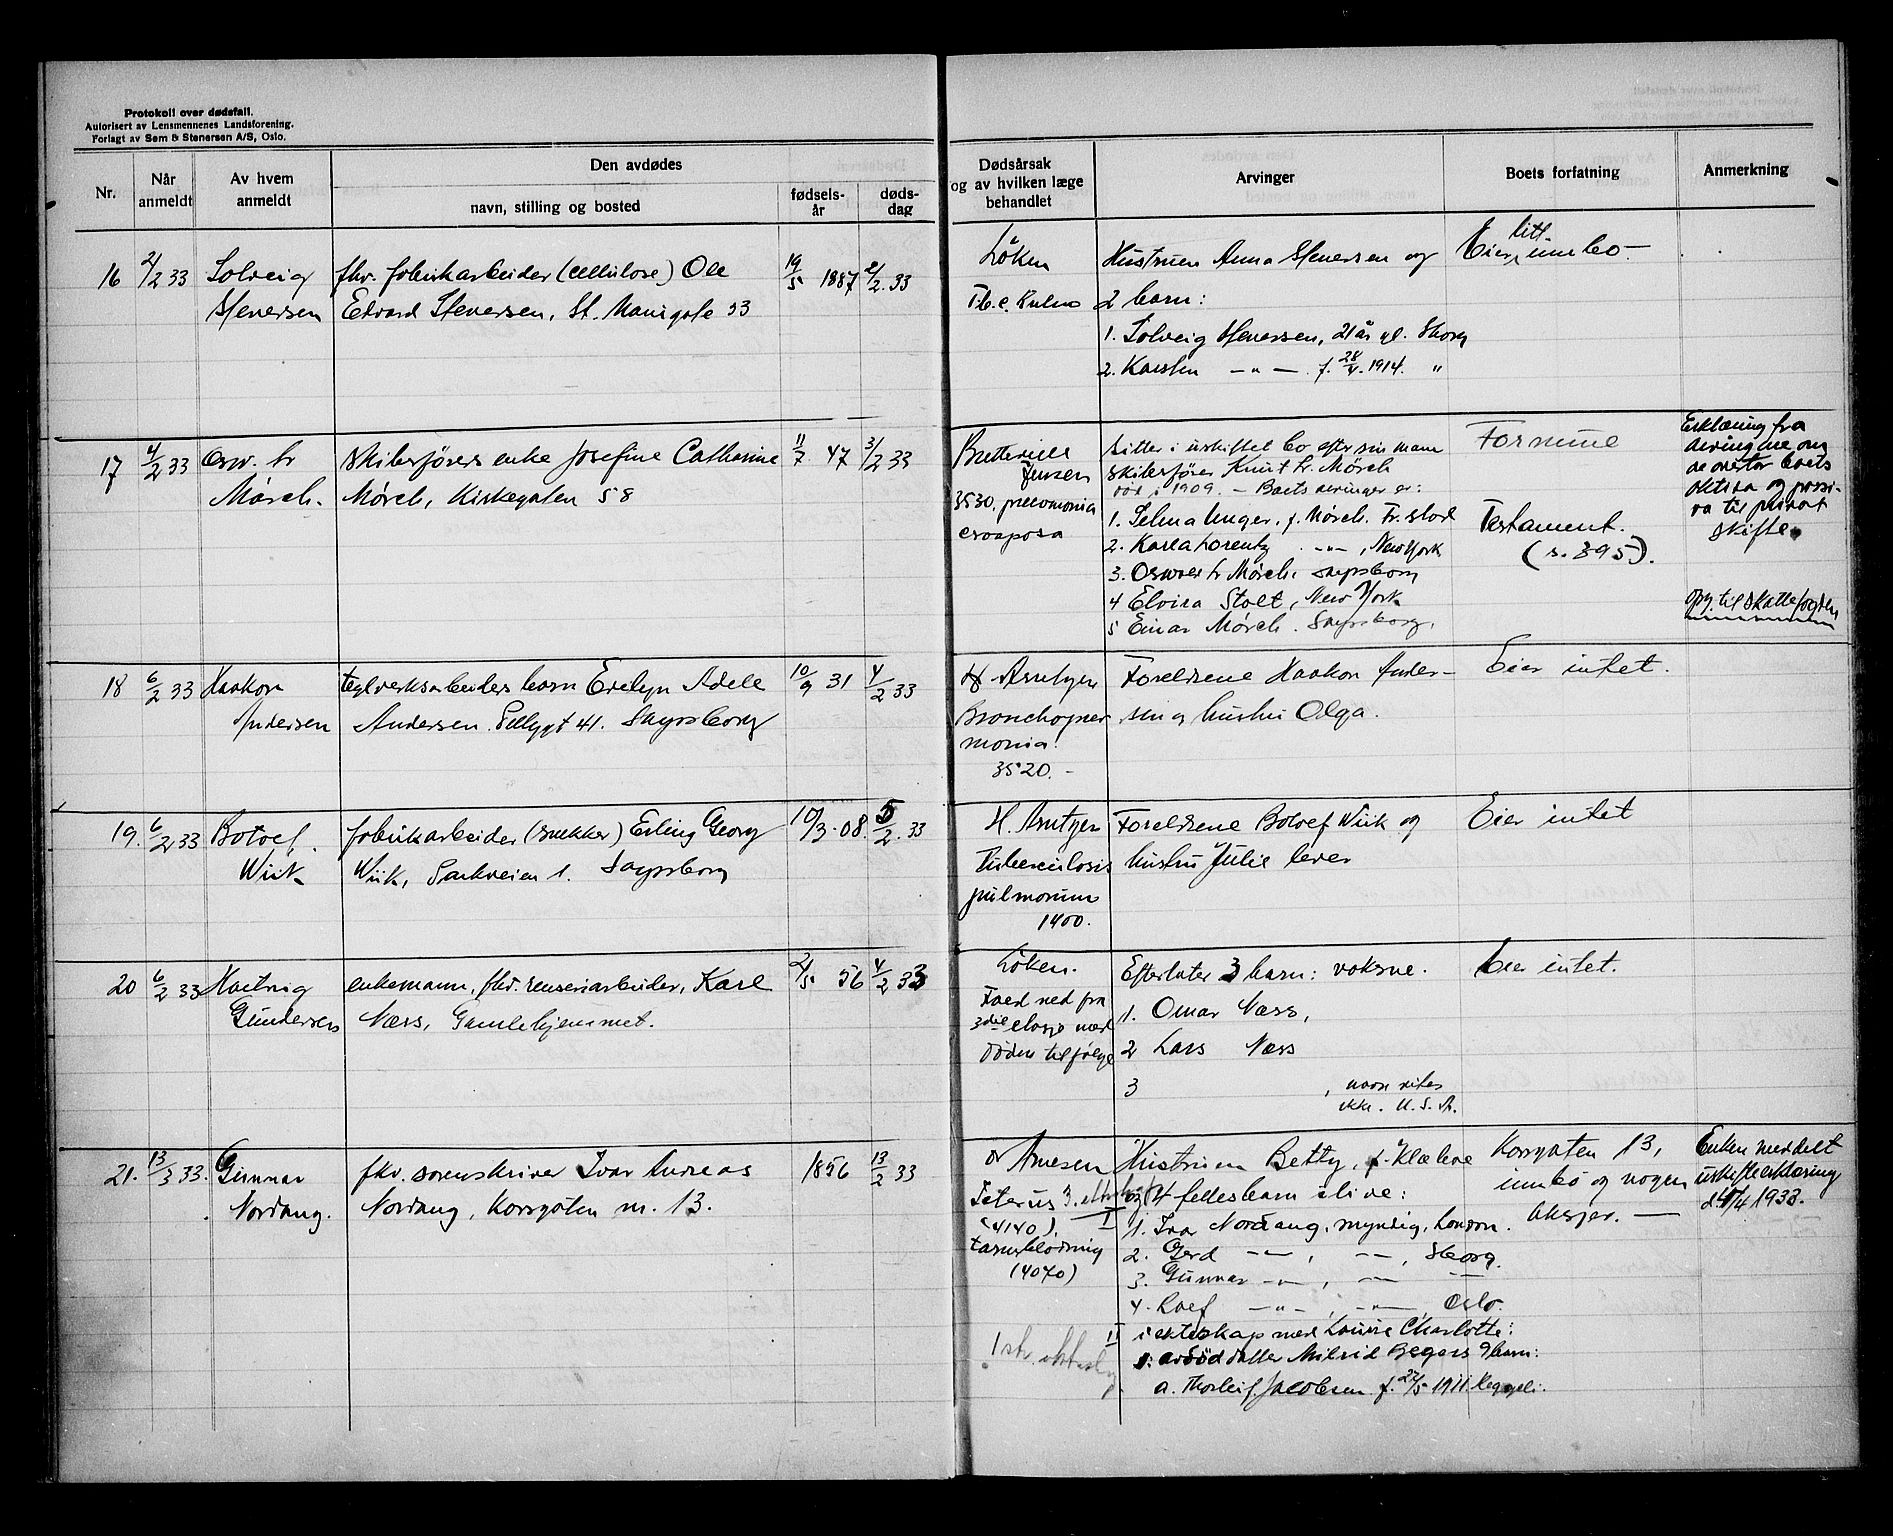 Protokoll over dødsfall.
Autorisert av Lensmennenes Landsforening.
Forlagt av Sem & Stenersen A/S, Oslo.
Nr.
Når anmeldt
Av hvem anmeldt
Den avdødes
navn, stilling og bosted
fødsels-år
døds-dag
Dødsårsak og av hvilken læge behandlet
Arvinger
Boets forfatning
Anmerkning
16 2/2 33 Solveig Stenersen
fhv. fabrikarbeider (cellulose) Ole
Edvard Stenersen, St. Mariegate 33
19/5 1887 2/2. 33
Løken
Hustruen Anna Stenersen og
2 barn:
1. Solveig Stenersen, 21 år gl. Sborg
2. Karsten — " — f. 28/4. 1914. "
Eier litt innbo —
17 4/2 33 Osw. Lr Mørch.
Skibsførers enke Josefine Catharine
Mørch, Kirkegaten 58
11/7 47 3/2 33
Jensen
3530, pneumonia
Sitter i uskiftet bo efter sin mann
skibsfører Knut Lr. Mørch
død i 1909. — Boets arvinger er:
1. Selma Unger, f. Mørch. Fr.stad
2. Karla Lorentz — " —, New York
3. Oswar Lr Mørch. Sarpsborg
4 Elvira Stolt, New York
5 Einar Mørch. Sarpsborg.
Formue
Testament.
(s. 395).
Erklæring fra
arvingene om
de overtar boets
aktiva og passi-
va til privat
skifte.
opg. til skattefogden
18 6/2 33 Haakon Andersen
teglverksarbeiders barn Evelyn Adele
Andersen. Sarpsborg
10/9 31 4/2 33
Bronchopneu-
monia.
3520. -
Foreldrene Haakon Ander-
sen og hustru Olga.
Eier intet.
19. 6/2 33 Botolf Wiik
fabrikarbeider (snekker) Erling Georg
Wiik, Parkveien 1. Sarpsborg
10/3. 08. 5/2. 33
Tuberculosis
pulmonum
1400.
Foreldrene Botolf Wiik og
hustru Julie lever
Eier intet
20 6/2 33 Hartvig Gundersen
enkemann, fhv. renseriarbeider, Karl
Næss, Gamlehjemmet.
2/5 56 4/2 33
Løken.
Faldt ned fra
3die etasje med
døden til følge
Efterlater 3 barn: voksne.
1. Omar Næss,
2 Lars Næss
3 , navn vites
ikke. U. S. A.
Eier intet.
21. 13/3 33. Gunnar Nordang.
fhv. sorenskriver Ivar Andreas
Nordang, Korsgaten nr. 13.
1856 13/2 33
Dr Arnesen
(4140).
tarmblødning
(4070)
Hustruen Betty, f. Klæboe
og 4 fellesbarn ilive:
I
1. Ivar Nordang, myndig, London.
2. Gerd — " —, — " —, Sborg.
3. Gunnar — " —, — " — —
4. Leif — " —, — " —, Oslo.
II i ekteskap med Louise Charlotte:
1: avdød datter Milrid Begers 9 barn:
a. Thorleif Jacobsen f. 27/5 1911.
Korsgaten 13,
innbo og nogen
aksjer. —
Enken meddelt
uskifteerklæring
d. 4/4 1933.